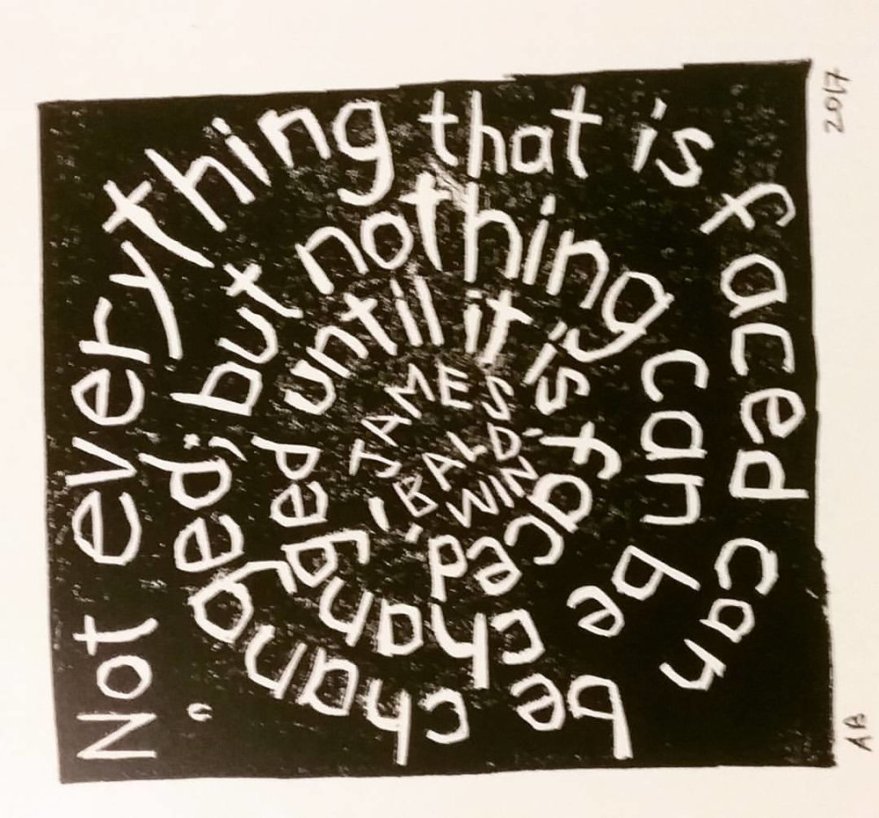 Not everything that is faced can be changed; but nothing can be changed until it is faced.
JAMES
BALD-
WIN
2017
AB